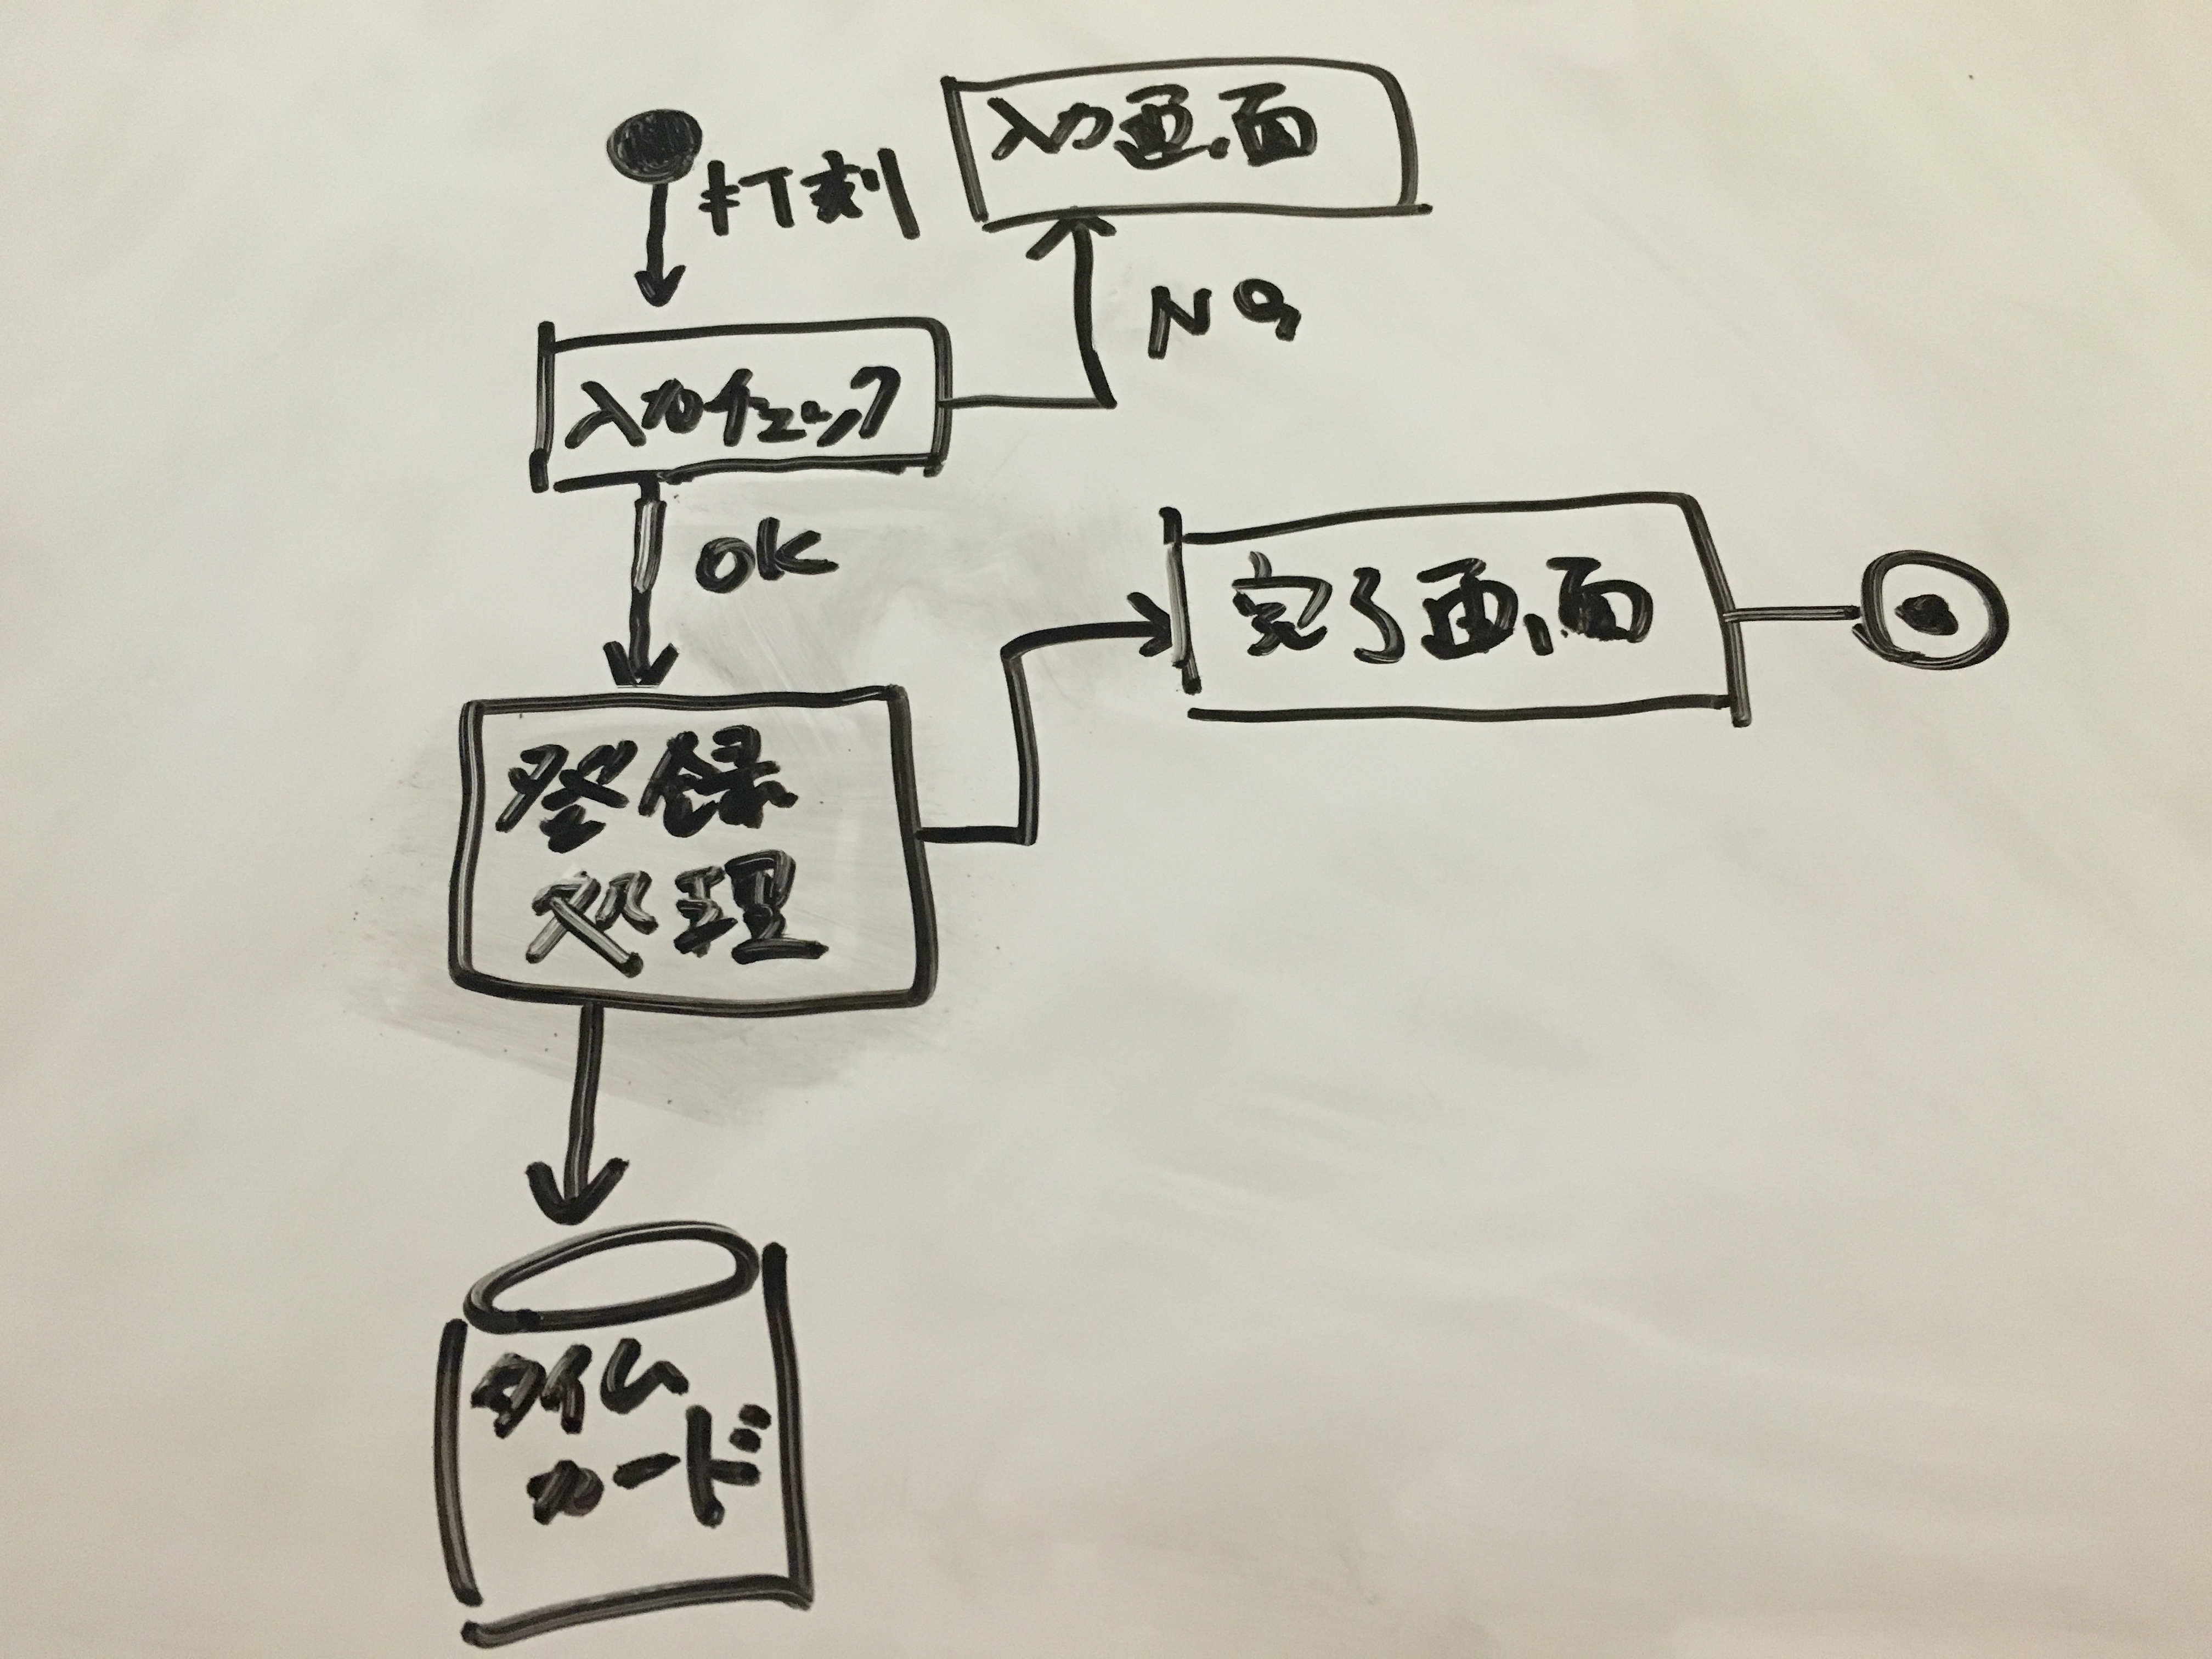 打刻
入力画面
NG
入力チェック
OK
完了画面
登録
処理
タイム
カード